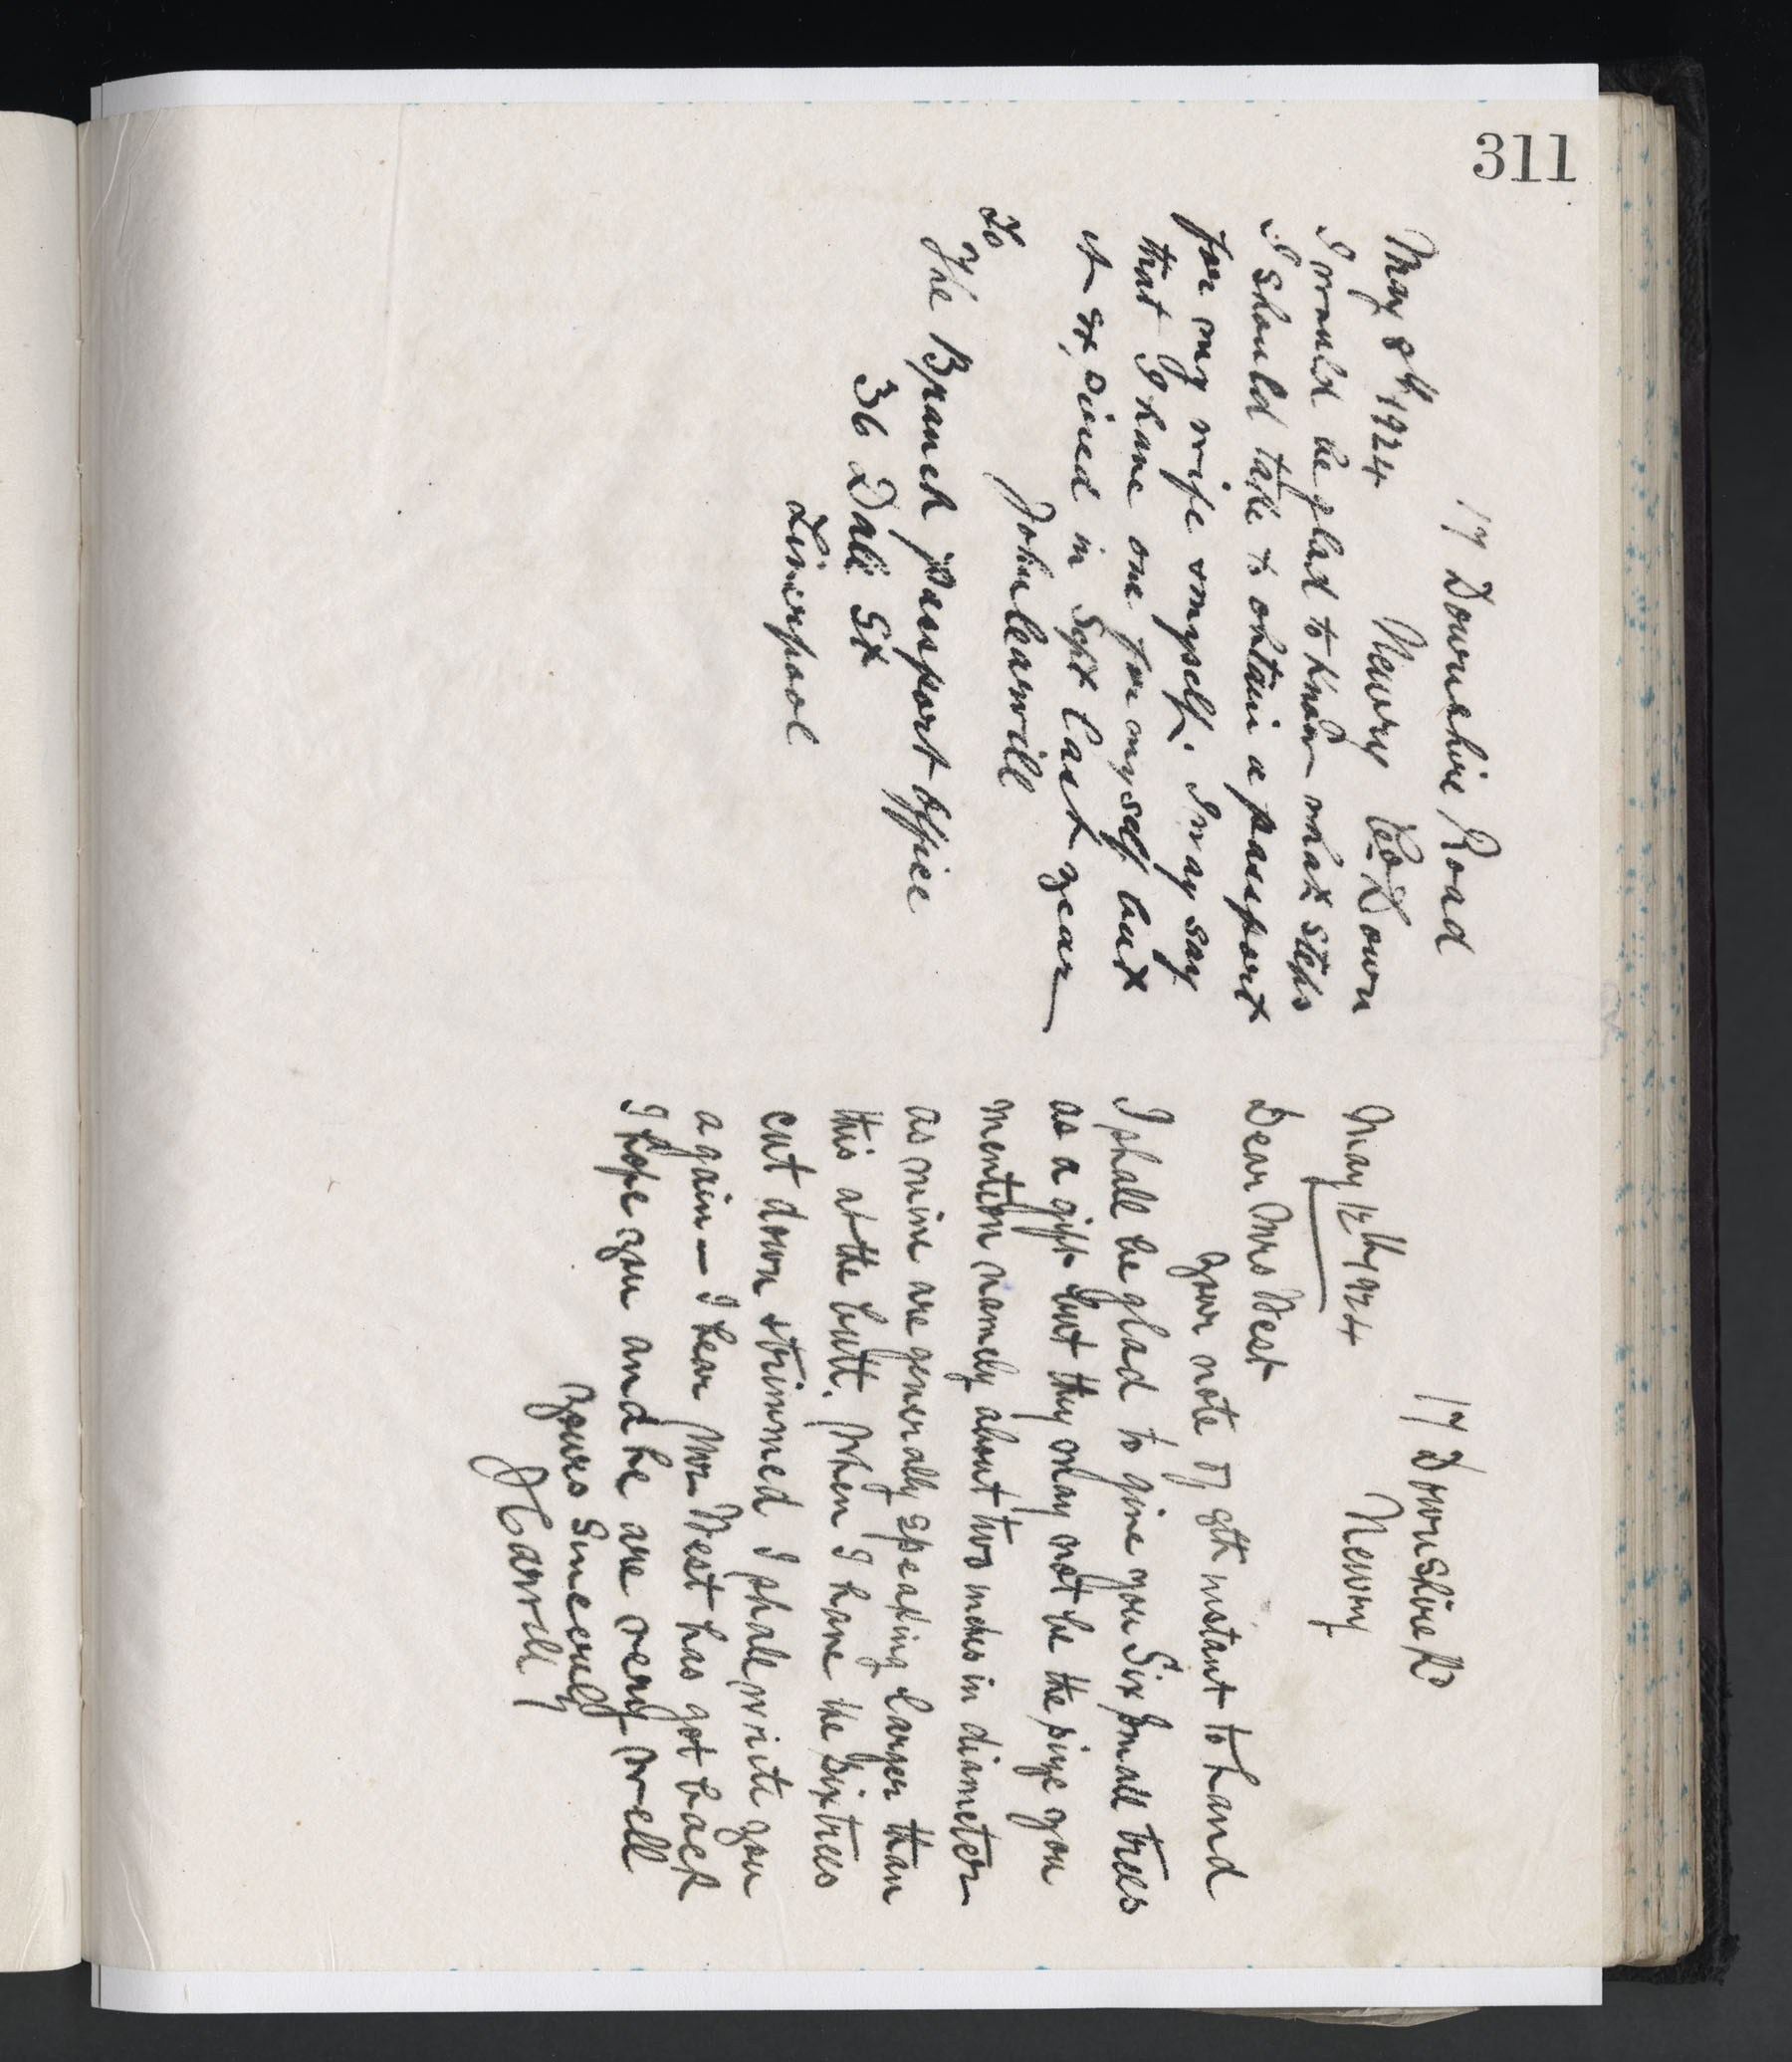 311
17 Downshire Road
Newry Co Down
May 8th 1924
I would be glad to know what steps
I should take to obtain a passport
for my wife & myself. I may say
that I have one for myself but
it expired in Sept last year
John Cearwill
To
The Branch Passport Office
36 Dale St
Liverpool
17 Downshire Rd
Newry
May 12th 1924
Dear Mrs West
Your note of 9th instant to hand
I shall be glad to give you six small trees
as a gift but they may not be the size you
mention namely about two inches in diameter
as mine are generally speaking larger than
this at the butt. When I have the six trees
cut down & trimmed I shall write you
again — I hear Mr West has got back
I hope you and he are very well
Yours Sincerely